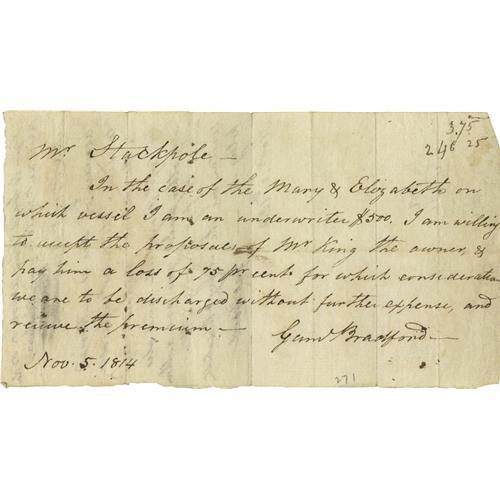 3.75
246 25
Mr Stackpole —
In the case of the Mary & Elizabeth on
which vessel I am an underwriter $500. I am willing
to accept the proposals of Mr King the owner, &
pay him a loss of 75 pr cent for which consideration
we are to be discharged without further expense, and
receive the premium —
Gam. Bradford
Nov. 5. 1814
271